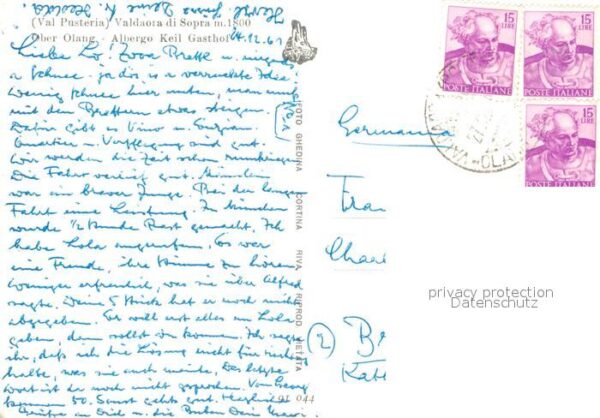 (Val Pusteria) Valdaora di Sopra m. 1800
Ober Olang - Albergo Keil Gasthof
14.12.61
Liebe Lo! Zwoa Brettl u. 
a Schnee. ja dös is a verruckte Idee
wenig Schnee hier unten, man muß
mit den Brettern etwas steigen.
Dafür gibt es Vino u. Enzian.
Quartier u. Verpflegung sind gut.
Wir werden die Zeit schon rumkriegen
Die Fahrt verlief gut.
war ein braver Junge. Bei der langen
Fahrt eine Leistung. In München
wurde 1/2 Stunde Rast gemacht, Ich
habe Lola angerufen, Es war
eine Freude, ihre Stimme zu hören,
weniger erfreulich, was sie über Alfred
sagte. Deine 5 Stück hat er noch nicht
abgegeben. Er will erst alles an Lola
geben, dann sollst du kommen. Ich sagte
ihr, daß ich die Lösung nicht für richtig
halte, was sie auch meinte. Das letzte
Wort ist da noch nicht gesprochen.
kommen 50. Sonst geht's gut. Herzliche
Grüße an Dich u. die Buben Dein
FOTO GHEDINA CORTINA RIVA RIPROD VIETATA
91 044
Germania
Frau
(2)
15
LIRE
POSTE ITALIANE
15
LIRE
POSTE ITALIANE
15
LIRE
POSTE ITALIANE
privacy protection
Datenschutz